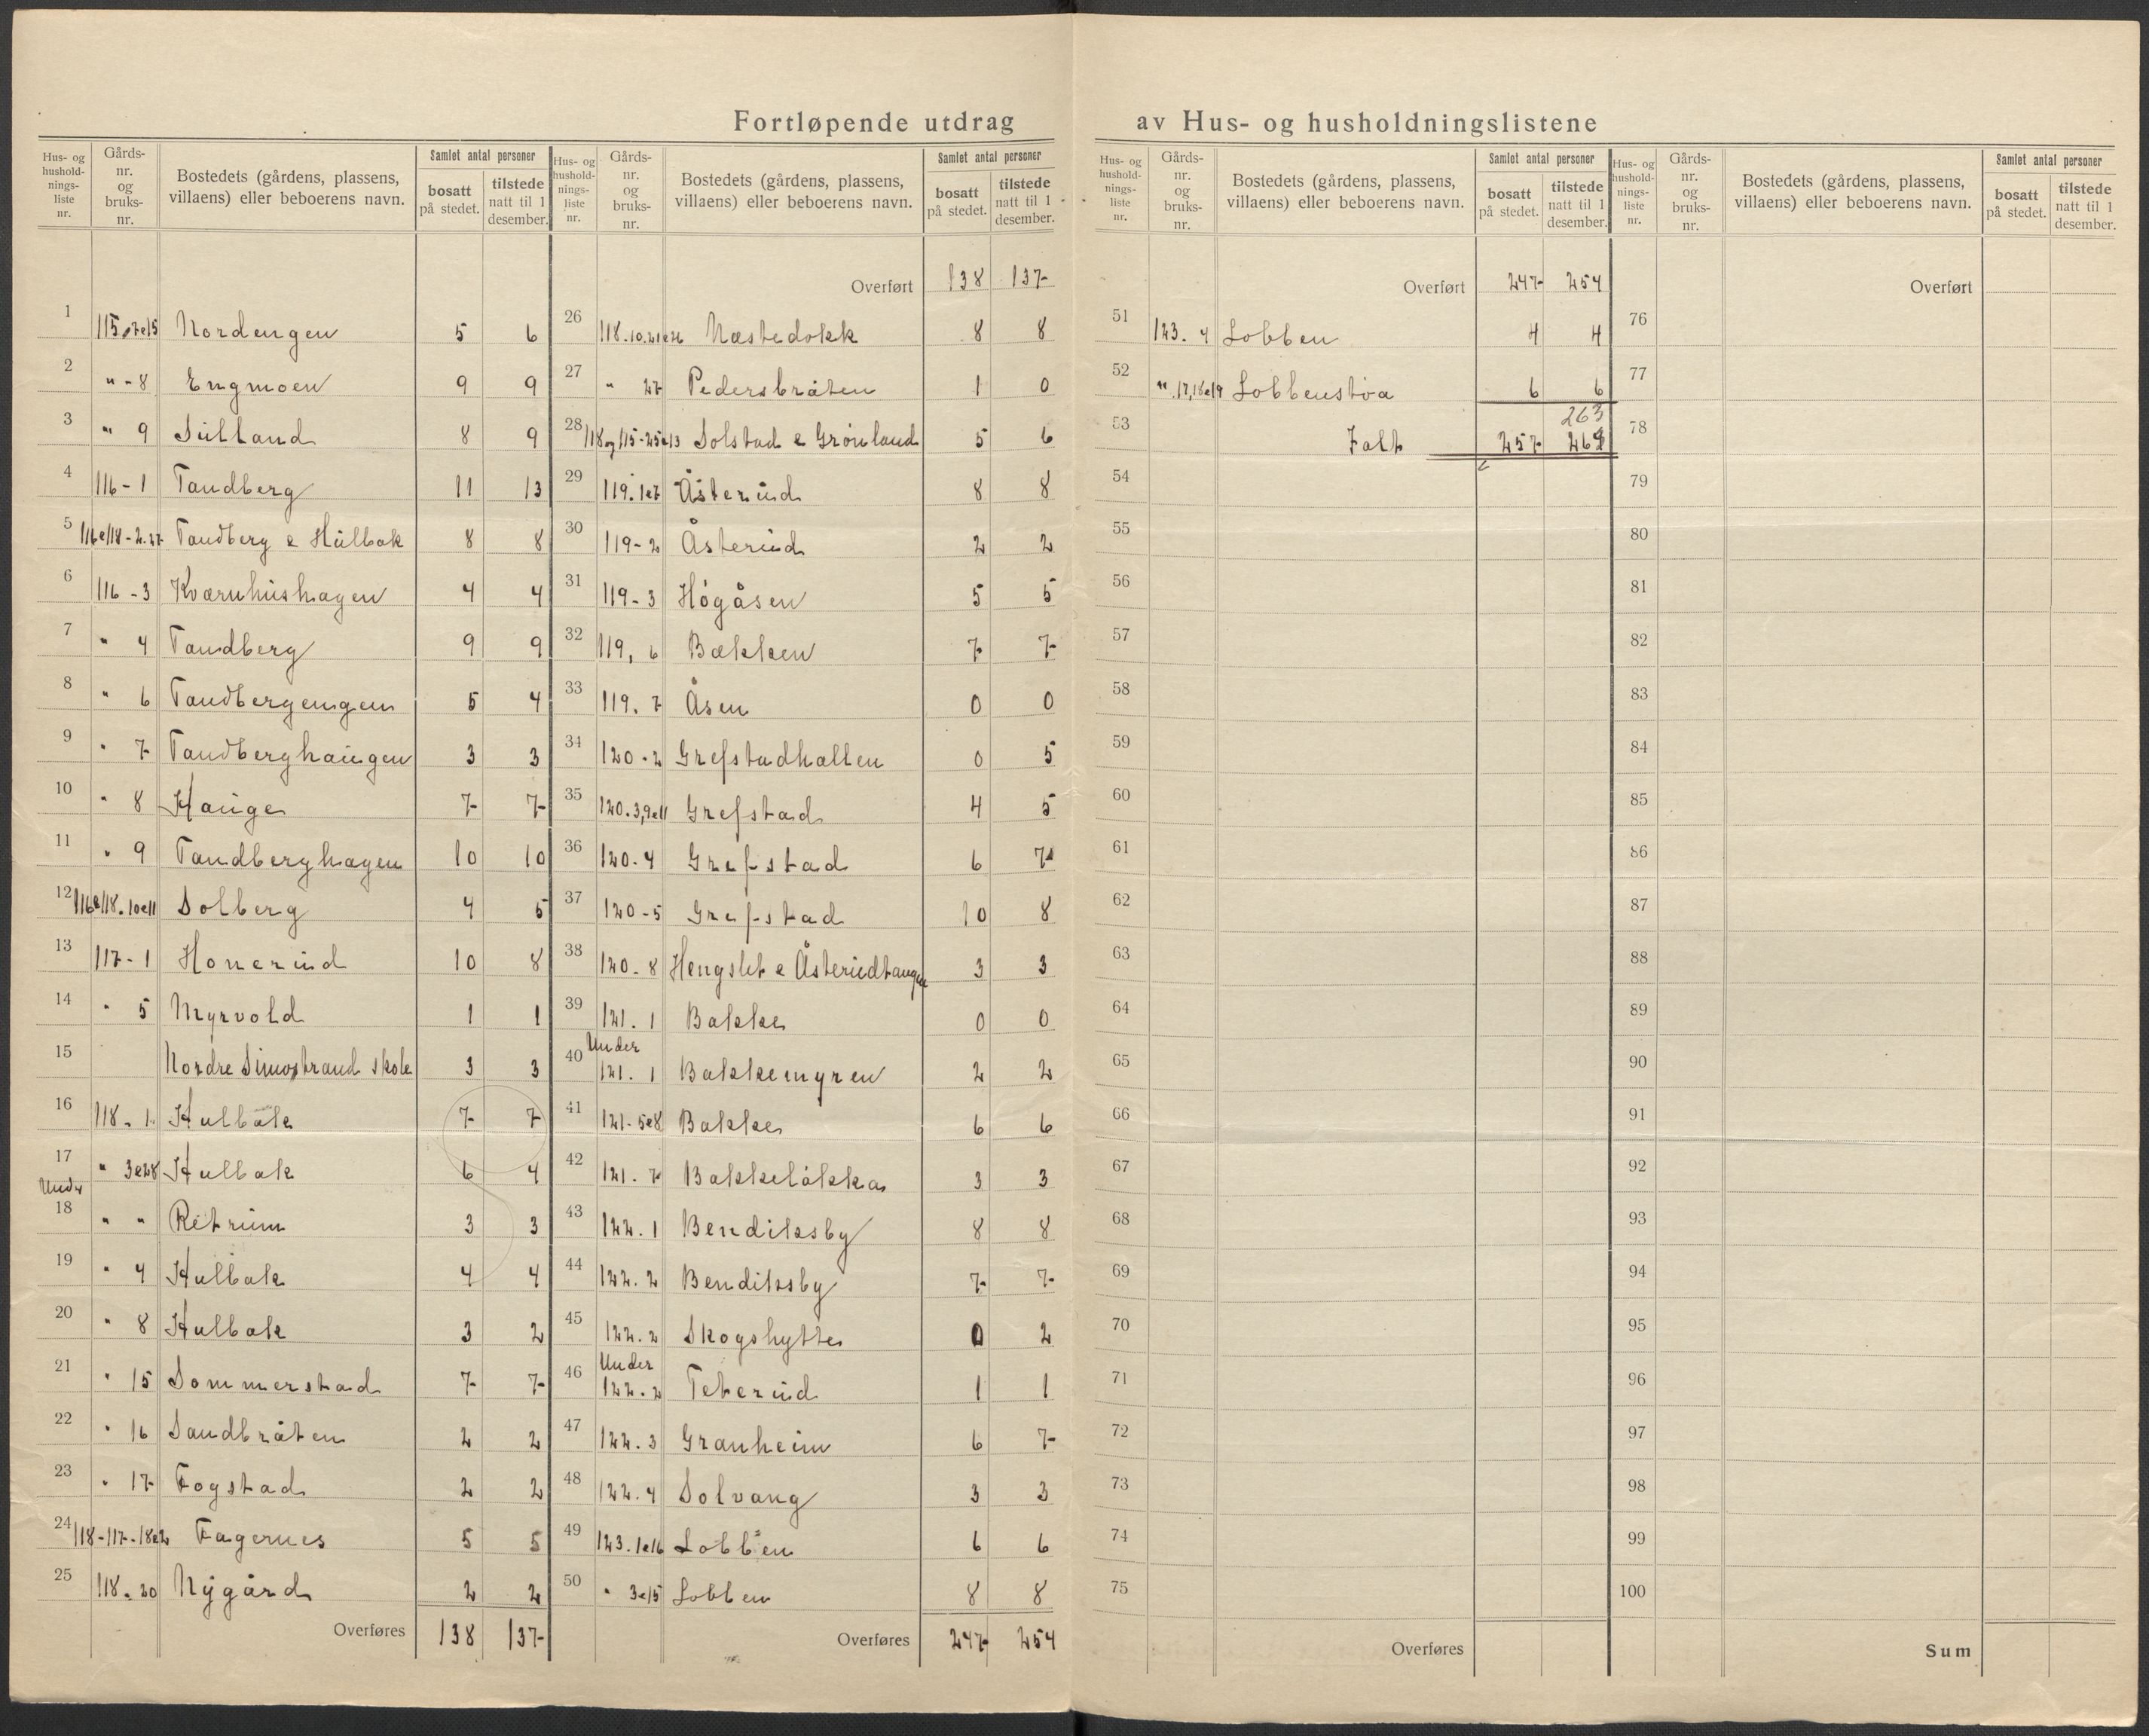 Fortløpende utdrag av Hus- og husholdningslistene
Hus- og hushold-nings-liste nr. Gårds-nr. og bruks-nr. Bostedets (gårdens, plassens, villaens) eller beboerens navn. Samlet antal personer bosatt på stedet. tilstede natt til 1 desember.
1 115,7e15 Nordengen 5 6
2 " - 8 Engmoen 9 9
3 " 9 Sulland 8 9
4 116 - 1 Tandberg 11 13
5 116e118 - 2.27 Tandberg e Hulbak 8 8
6 116 - 3 Kværnhushagen 4 4
7 " 4 Tandberg 9 9
8 " 6 Tandbergengen 5 4
9 " 7 Tandberghaugen 3 3
10 " 8 Hauge 7 7
11 " 9 Tandberghagen 10 10
12 116e118. 10e11 Solberg 4 5
13 117 - 1 Honerud 10 8
14 " 5 Myrvold 1 1
15 Nordre Simostrand skole 3 3
16 118. 1 Hulbak 7 7
17 " 3e28 Hulbak 6 4
Under
18 " " Retrum 3 3
19 " 4 Hulbak 4 4
20 " 8 Hulbak 3 2
21 " 15 Sommerstad 7 7
22 " 16 Sandbråten 2 2
23 " 17 Fogstad 2 2
24 118-117-18e2 Fagernes 5 5
25 118. 20 Nygård 2 2
Overføres 138 137
Hus- og hushold-nings-liste nr. Gårds-nr. og bruks-nr. Bostedets (gårdens, plassens, villaens) eller beboerens navn. Samlet antal personer bosatt på stedet. tilstede natt til 1 desember.
Overført 138 137
26 118.10.21e26 Næstedokk 8 8
27 " 27 Pedersbråten 1 0
28 118og115-25e13 Solstad e Grønland 5 6
29 119. 1e7 Åsterud 8 8
30 119-2 Åsterud 2 2
31 119-3 Høgåsen 5 5
32 119, 6 Bækken 7 7
33 119. 7 Åsen 0 0
34 120-2 Grefstadhallen 0 5
35 120.3,9e11 Grefstad 4 5
36 120-4 Grefstad 6 7
37 120-5 Grefstad 10 8
38 120-8 Hengslet e Åsterudtangen 3 3
39 121. 1 Bakke 0 0
Under
40 121. 1 Bakkemyren 2 2
41 121-5e8 Bakke 6 6
42 121. 7 Bakkeløkka 3 3
43 122. 1 Bendiksby 8 8
44 122. 2 Bendiksby 7 7
45 122. 2 Skogshytte 0 2
Under
46 122. 2 Teterud 1 1
47 122. 3 Granheim 6 7
48 122. 4 Solvang 3 3
49 123. 1e16 Lobben 6 6
50 " 3e15 Lobben 8 8
Overføres 247 254
Hus- og hushold-nings-liste nr. Gårds-nr. og bruks-nr. Bostedets (gårdens, plassens, villaens) eller beboerens navn. Samlet antal personer bosatt på stedet. tilstede natt til 1 desember.
Overført 247 254
51 123. 4 Lobben 4 4
52 " 17,18e19 Lobbenstøa 6 6
263
53 Ialt 257 264
54
55
56
57
58
59
60
61
62
63
64
65
66
67
68
69
70
71
72
73
74
75
Overføres
Hus- og hushold-nings-liste nr. Gårds-nr. og bruks-nr. Bostedets (gårdens, plassens, villaens) eller beboerens navn. Samlet antal personer bosatt på stedet. tilstede natt til 1 desember.
Overført
76
77
78
79
80
81
82
83
84
85
86
87
88
89
90
91
92
93
94
95
96
97
98
99
100
Sum